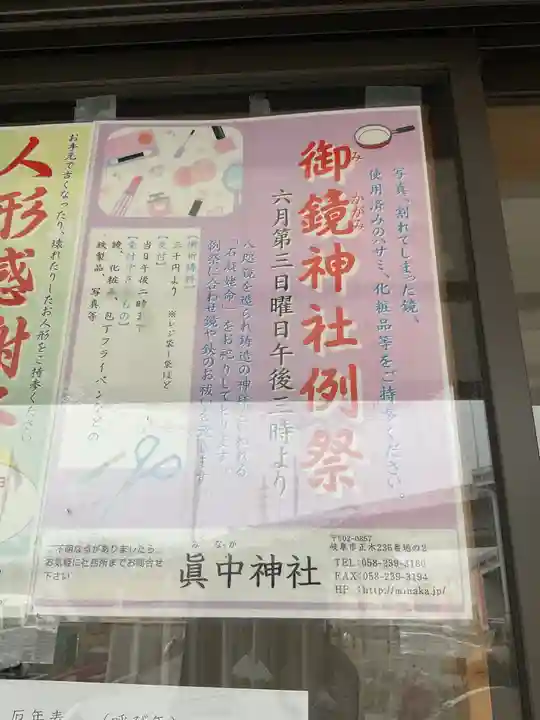 写真、割れてしまった鏡、
使用済みのハサミ、化粧品等をご持参ください。
御鏡神社例祭
みかがみ
六月第三日曜日午後三時より
八咫鏡を造られ鋳造の神様といわれる
「石凝姥命」をお祀りしております。
例祭に合わせ鏡や鉄のお祓いを致します
【御祈祷料】
三千円より ※レジ袋一袋ほど
【受付】
当日午後二時まで
鏡、化粧品、包丁フライパンなどの
鉄製品、写真等
不明な点がありましたら
お気軽に社務所までお問合せ
下さい
みなか
眞中神社
〒502-0857
岐阜市正木236番地の2
TEL:058-239-3180
FAX:058-239-3194
HP :http://minaka.jp/
お手元で古くなったり、壊れたりしたお人形をご持参ください
人形感謝
厄年表 (呼び年)